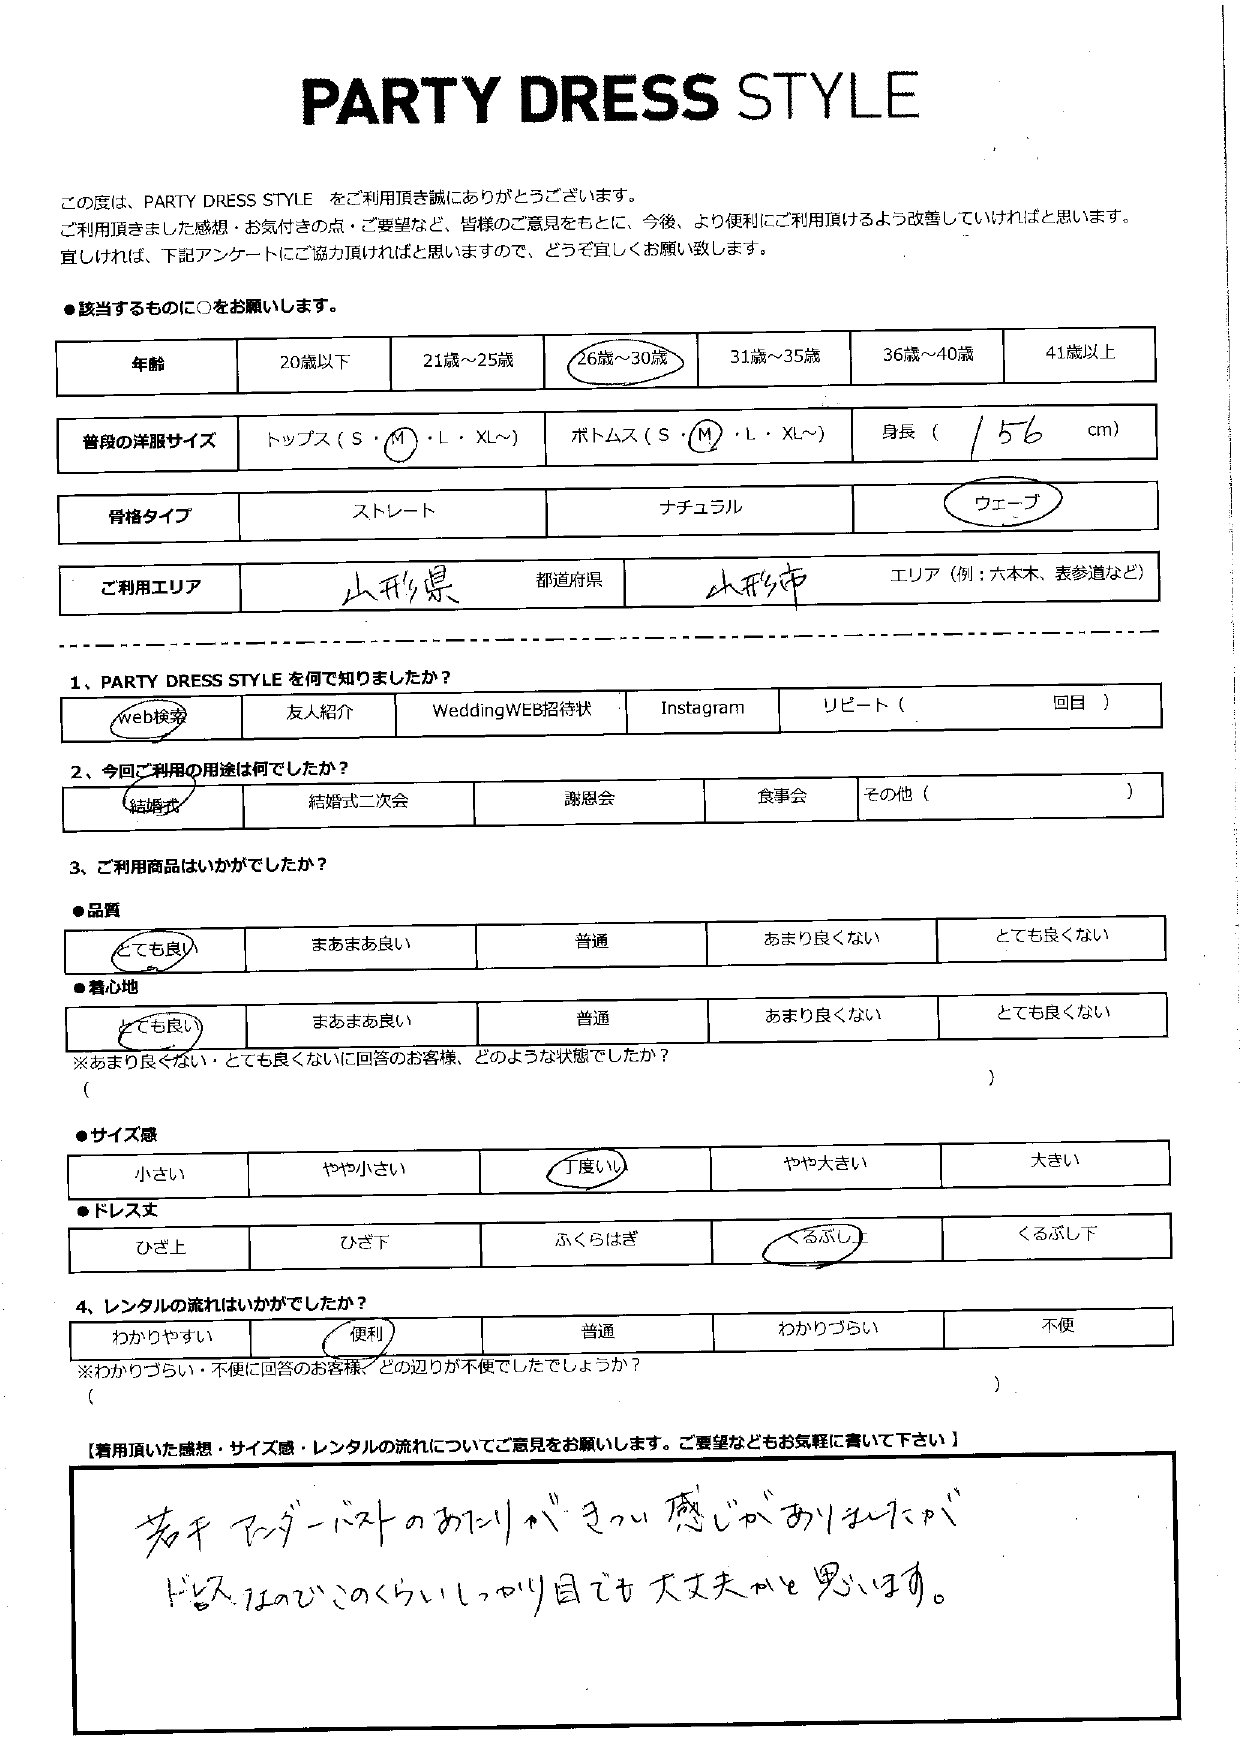 PARTY DRESS STYLE
この度は、PARTY DRESS STYLE をご利用頂き誠にありがとうございます。
ご利用頂きました感想・お気付きの点・ご要望など、皆様のご意見をもとに、今後、より便利にご利用頂けるよう改善していければと思います。
宜しければ、下記アンケートにご協力頂ければと思いますので、どうぞ宜しくお願い致します。
●該当するものに○をお願いします。
年齢 20歳以下 21歳～25歳 26歳～30歳 31歳～35歳 36歳～40歳 41歳以上
普段の洋服サイズ トップス ( S ・ M ・ L ・ XL～) ボトムス ( S ・ M ・ L ・ XL～) 身長 ( 156 cm)
骨格タイプ ストレート ナチュラル ウェーブ
ご利用エリア 山形県 都道府県 山形市 エリア（例：六本木、表参道など）
1、PARTY DRESS STYLE を何で知りましたか？
web検索 友人紹介 WeddingWEB招待状 Instagram リピート ( 回目 )
2、今回ご利用の用途は何でしたか？
結婚式 結婚式二次会 謝恩会 食事会 その他 ( )
3、ご利用商品はいかがでしたか？
●品質
とても良い まあまあ良い 普通 あまり良くない とても良くない
●着心地
とても良い まあまあ良い 普通 あまり良くない とても良くない
※あまり良くない・とても良くないに回答のお客様、どのような状態でしたか？
( )
●サイズ感
小さい やや小さい 丁度いい やや大きい 大きい
●ドレス丈
ひざ上 ひざ下 ふくらはぎ くるぶし上 くるぶし下
4、レンタルの流れはいかがでしたか？
わかりやすい 便利 普通 わかりづらい 不便
※わかりづらい・不便に回答のお客様、どの辺りが不便でしたでしょうか？
( )
【着用頂いた感想・サイズ感・レンタルの流れについてご意見をお願いします。ご要望などもお気軽に書いて下さい】
若干 アンダーバストのあたりが きつい 感じがありましたが
ドレスなのでこのくらいしっかり目でも 大丈夫かと 思います。